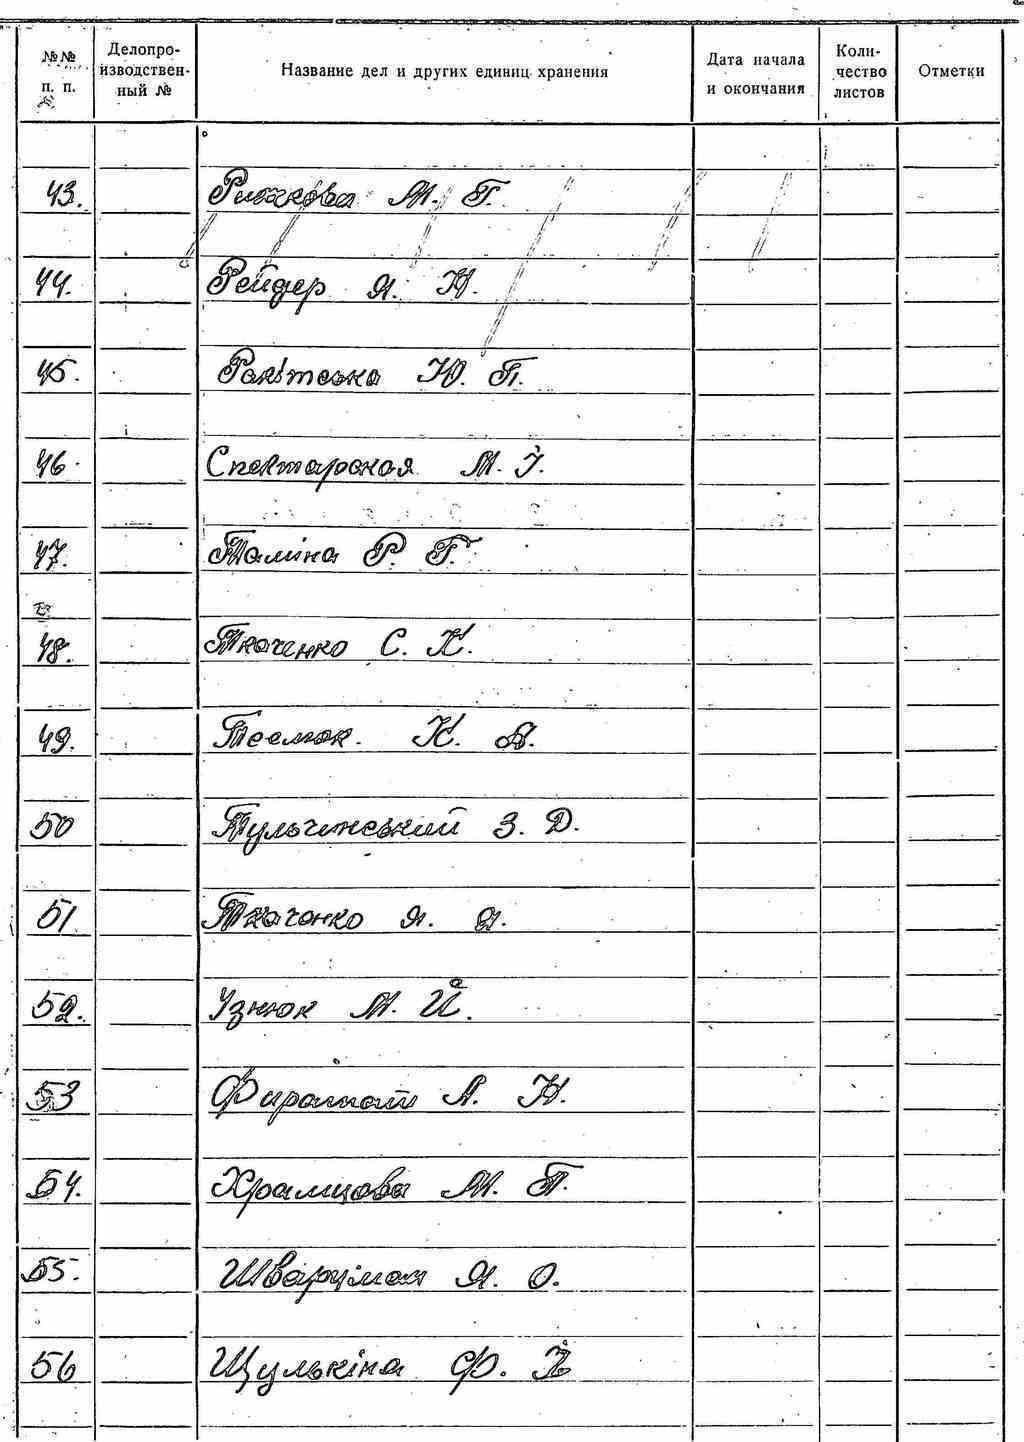 №№ п. п. Делопроизводственный № Название дел и других единиц хранения Дата начала и окончания Количество листов Отметки
43. Рижкова М. Г.
44. Рейдер Я. Н.
45. Ю. П.
46. Спектарская М. І.
47. Таліна Р. Г.
48. Ткаченко С. К.
49. К. А.
50 Тульчинський З. Д.
51. Ткаченко Я. Я.
52. Узнюк М. Й.
53 А. Н.
54. Храмцова М. П.
55. Шварцман Я. О.
56 Щулькіна Ф.